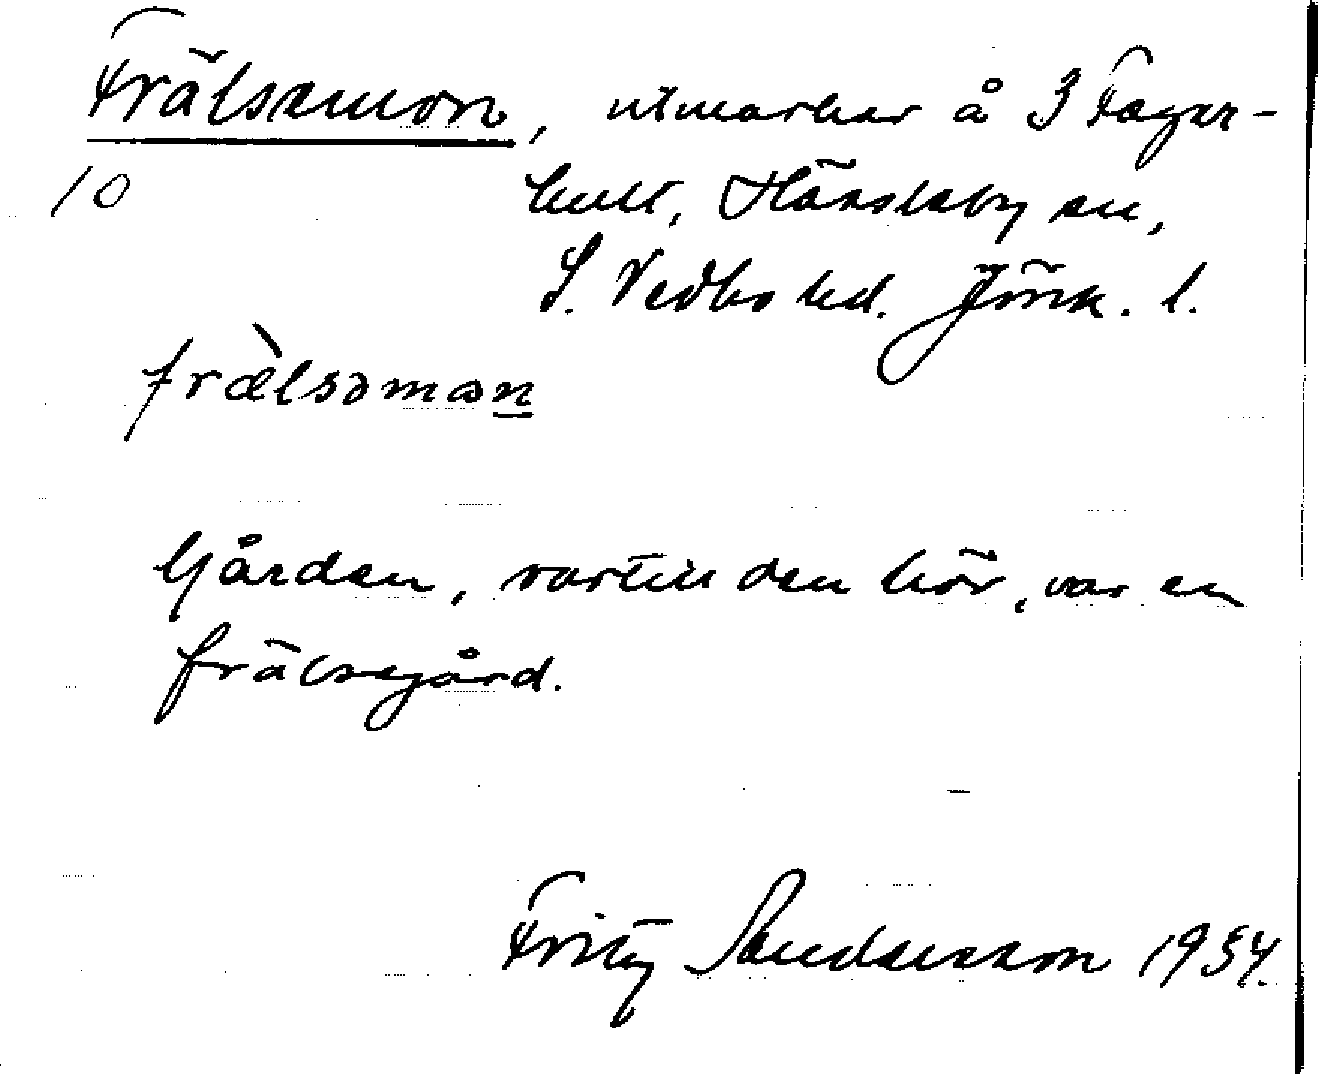 Frälsemon, utmarker å 3 Fager-
10
hult, Hässleby sn,
S. Vedbo hd. Jönk. l.
frælsəmɷn
Gården, vartill den hör, var en
frälsegård.
Fritz Sandersson 1934.